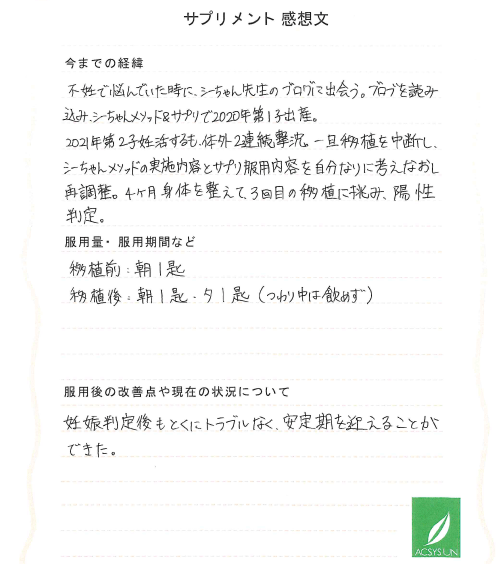 サプリメント 感想文
今までの経緯
不妊で悩んでいた時に、シーちゃん先生のブログに出会う。ブログを読み
込み、シーちゃんメソッド&サプリで2020年第1子出産。
2021年第2子妊活するも、体外2連続撃沈。一旦移植を中断し、
シーちゃんメソッドの実施内容とサプリ服用内容を自分なりに考えなおし
再調整。4ヶ月身体を整えて、3回目の移植に挑み、陽性
判定。
服用量・服用期間など
移植前：朝1匙
移植後：朝1匙・夕1匙（つわり中は飲めず）
服用後の改善点や現在の状況について
妊娠判定後もとくにトラブルなく、安定期を迎えることが
できた。
ACSYSUN